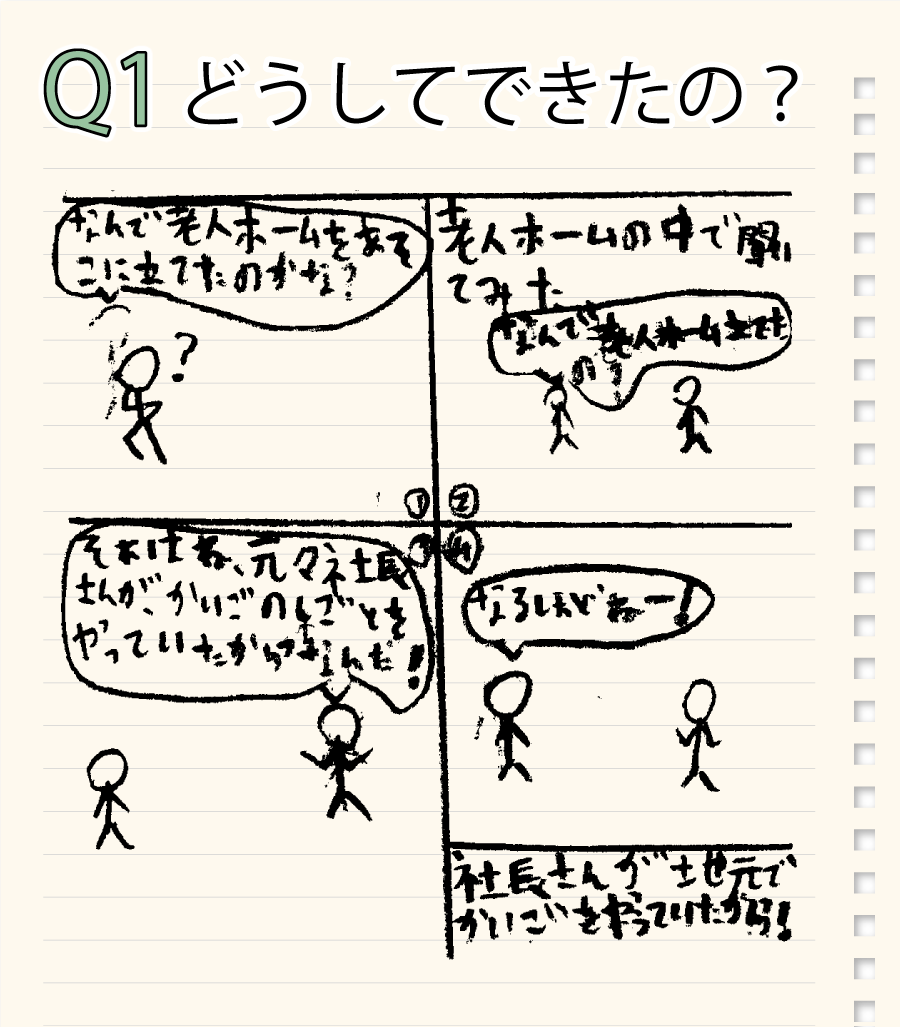 Q1 どうしてできたの？
なんで老人ホームをあそ
こに立てたのかな？
?
①
老人ホームの中で聞い
てみた
なんで老人ホーム立てた
の？
②
それはね、元々社長
さんが、かいごのしごとを
やっていたからなんだ！
③
④
なるほどねー！
社長さんが土地元で
かいごをやっていたから！